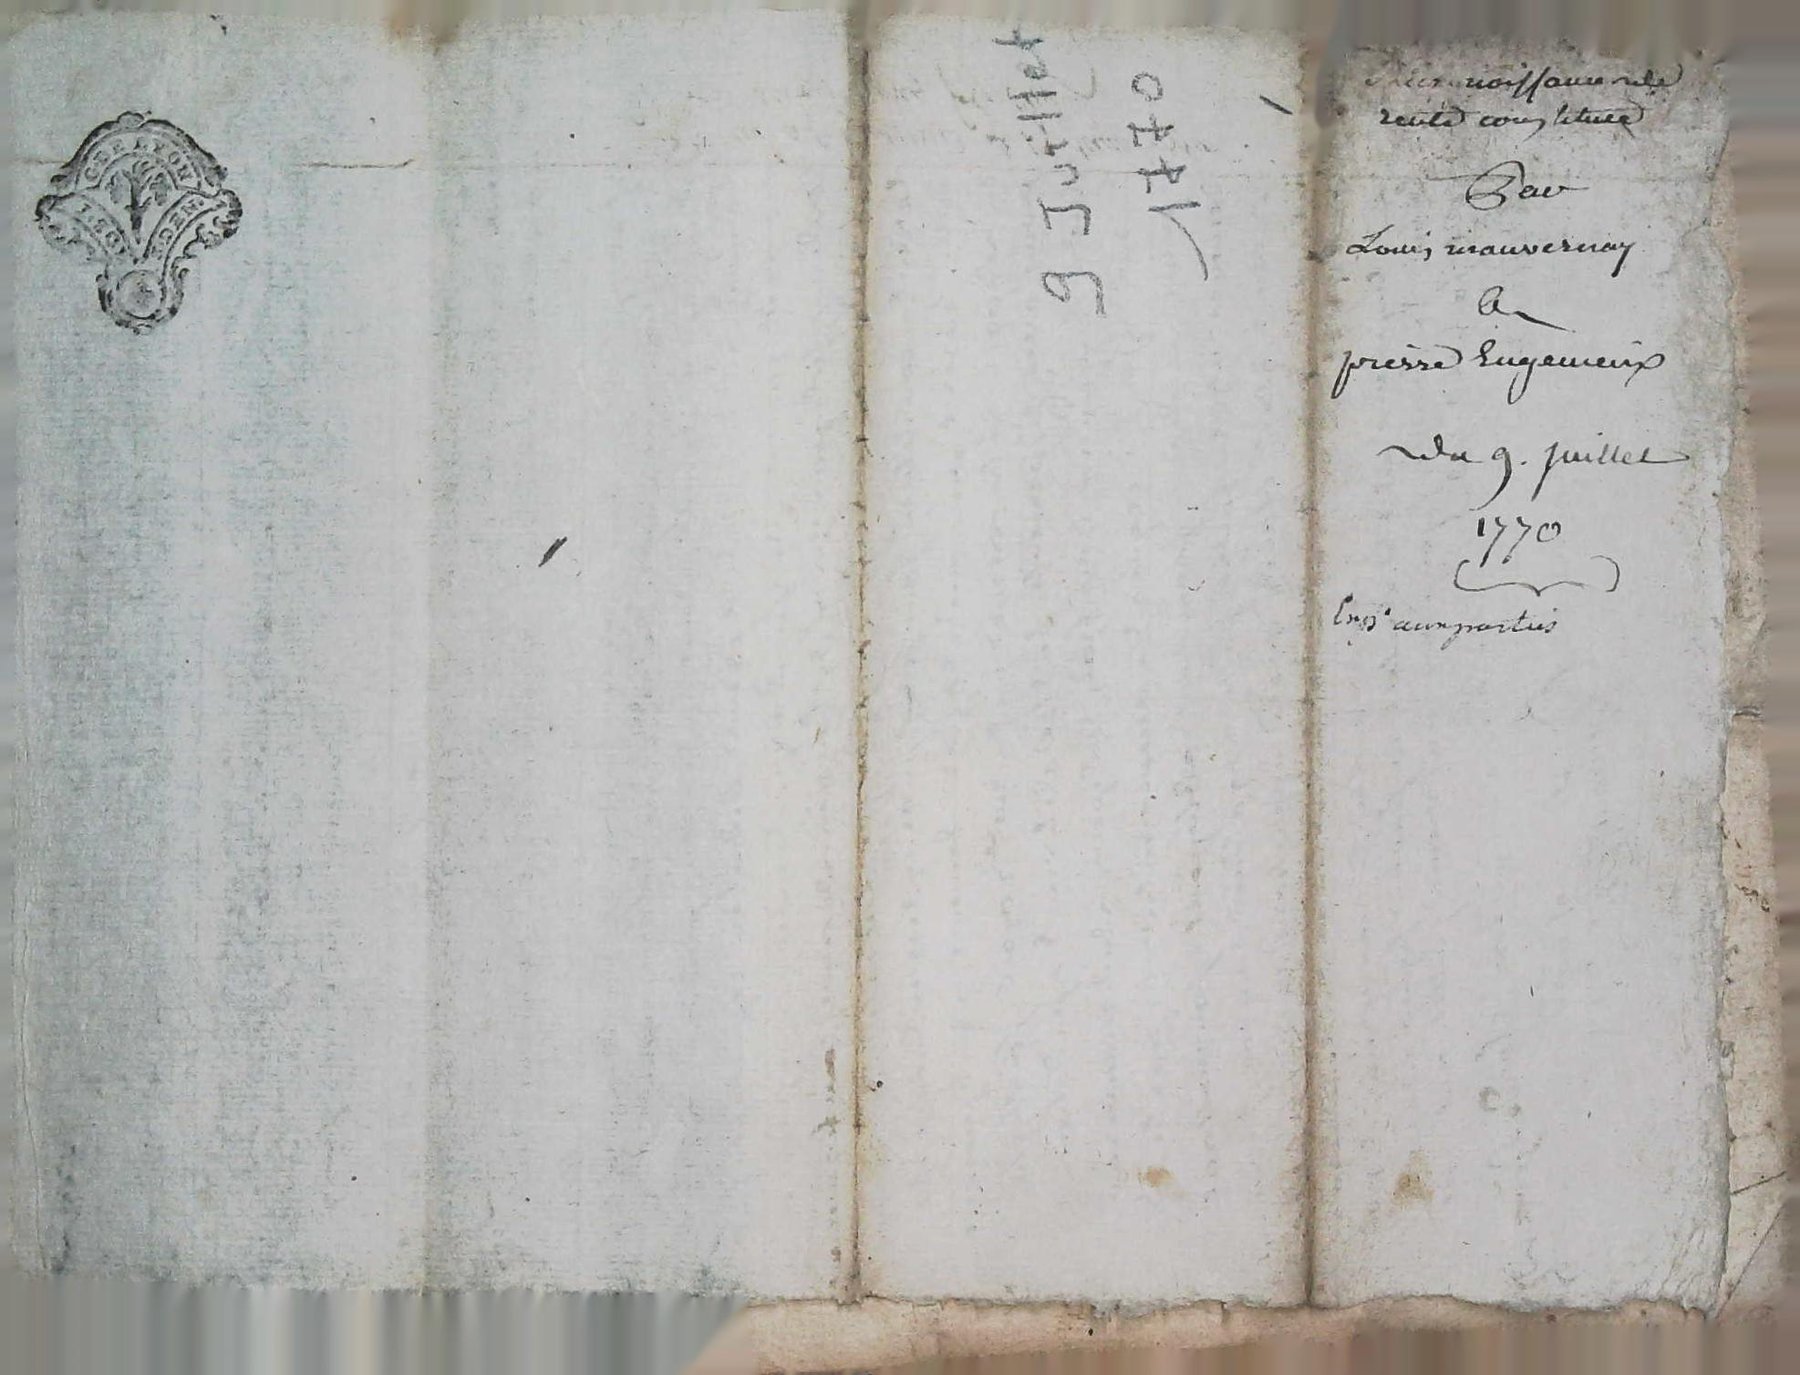 GEN. LYON
9 Juillet
1770
reconnoissance de
rente constituée
Par
Louis mauvernay
A
pierre Eugemeux
du 9. juillet
1770
aux parties